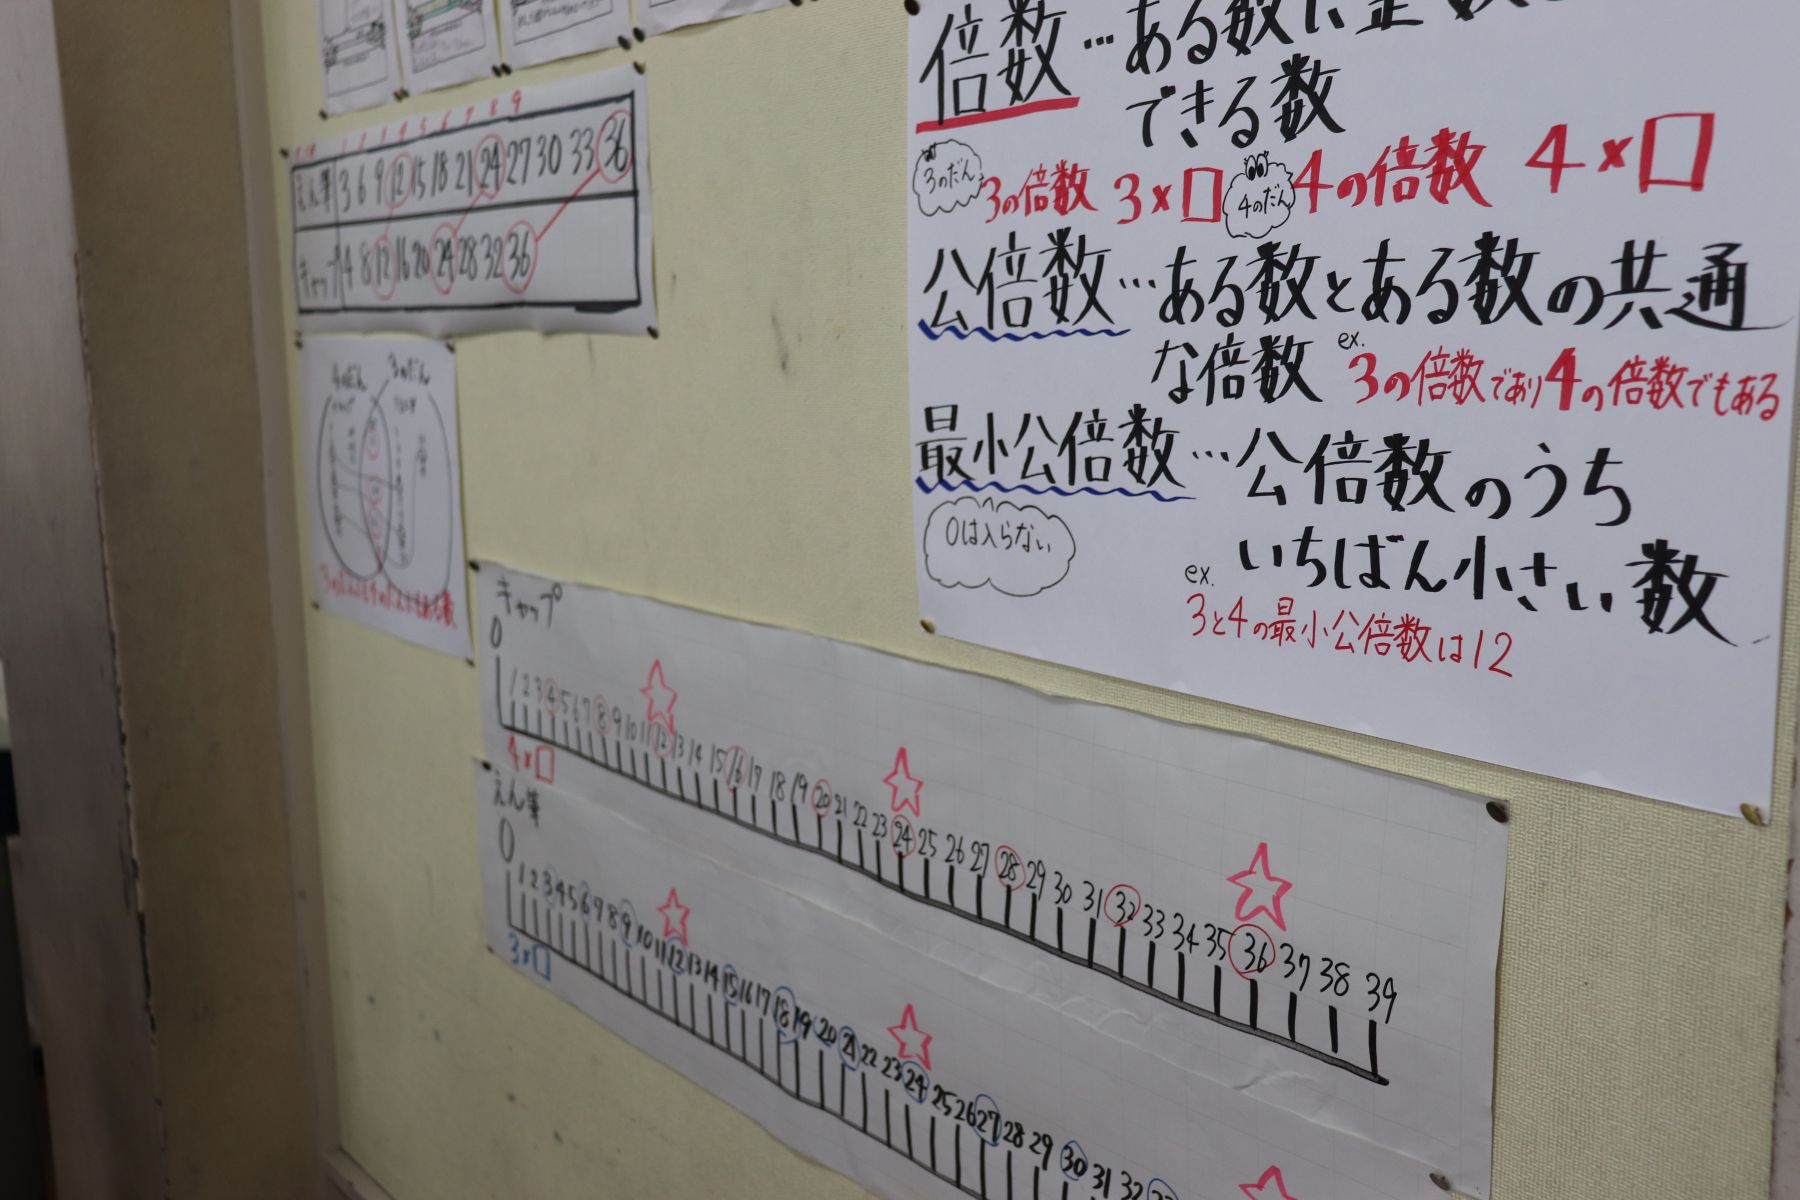 倍数…ある数に整数
できる数
3のだん
3の倍数 3×□
4のだん
4の倍数 4×□
公倍数…ある数とある数の共通
な倍数
ex.
3の倍数であり4の倍数でもある
最小公倍数…公倍数のうち
いちばん小さい数
0は入らない
ex.
3と4の最小公倍数は12
1 2 3 4 5 6 7 8 9
えん筆 3 6 9 12 15 18 21 24 27 30 33 36
キャップ 4 8 12 16 20 24 28 32 36
4のだん 3のだん
キャップ
キャップ
0 1 2 3 4 5 6 7 8 9 10 11 12 13 14 15 16 17 18 19 20 21 22 23 24 25 26 27 28 29 30 31 32 33 34 35 36 37 38 39
4×□
えん筆
0 1 2 3 4 5 6 7 8 9 10 11 12 13 14 15 16 17 18 19 20 21 22 23 24 25 26 27 28 29 30 31 32 33
3×□